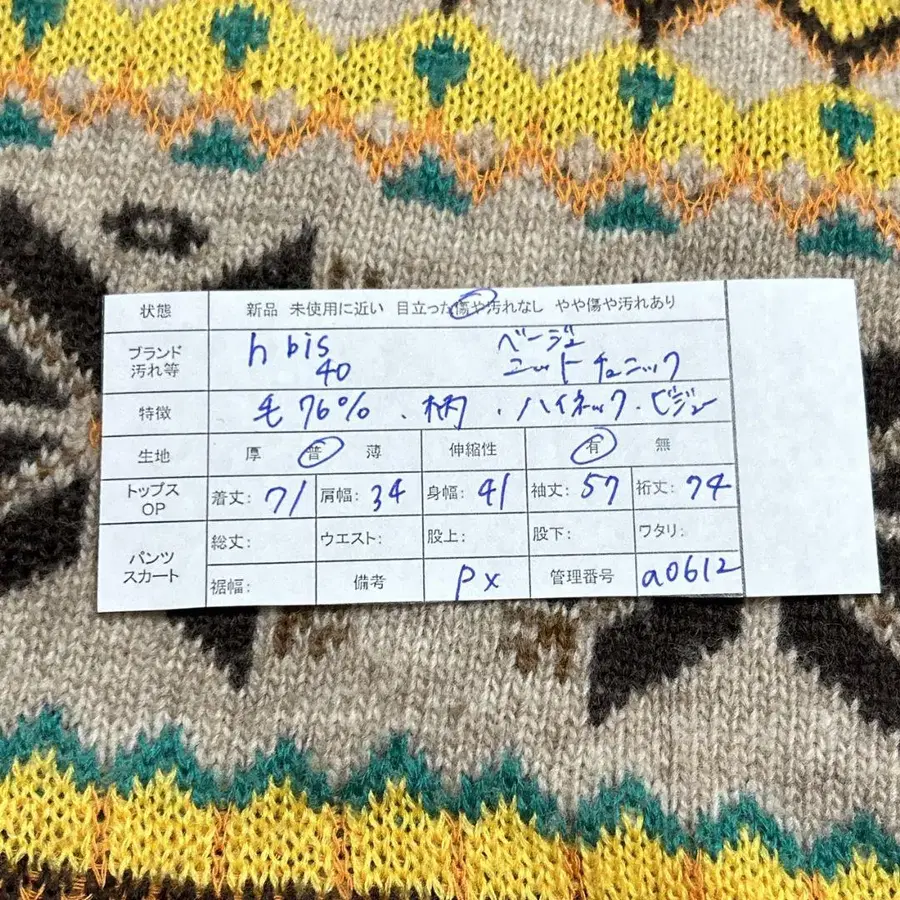 状態 新品 未使用に近い 目立った傷や汚れなし やや傷や汚れあり
ブランド 汚れ等 h bis 40 ベージュ ニットチュニック
特徴 毛76%、柄、ハイネック・ビジュー
生地 厚 普 薄 伸縮性 有 無
トップス OP 着丈: 71 肩幅: 34 身幅: 41 袖丈: 57 裄丈: 74
パンツ スカート 総丈: ウエスト: 股上: 股下: ワタリ:
裾幅: 備考 px 管理番号 a0612